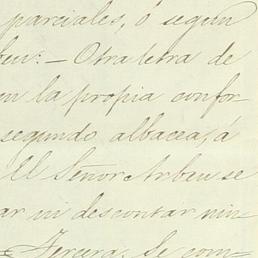 parciales, ó segun
beu: — Otra letra de
en la propia confor
segundo albacea, á
El Señor Arbeu se
ar ni descontar nin-
Tercera: Se com-